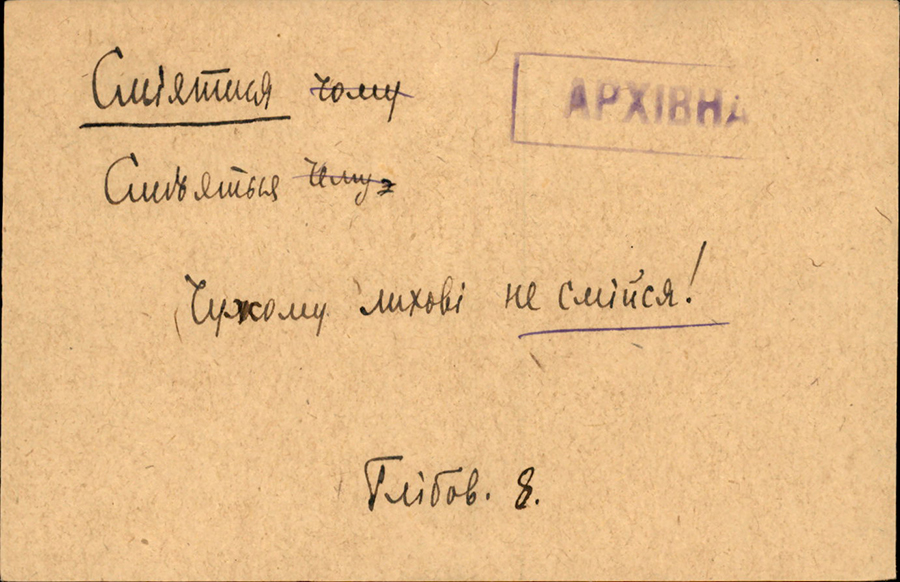 Сміятися чому
АРХІВНА
Смѣяться чему
Чужому лихові не смійся!
Глібов. 8.